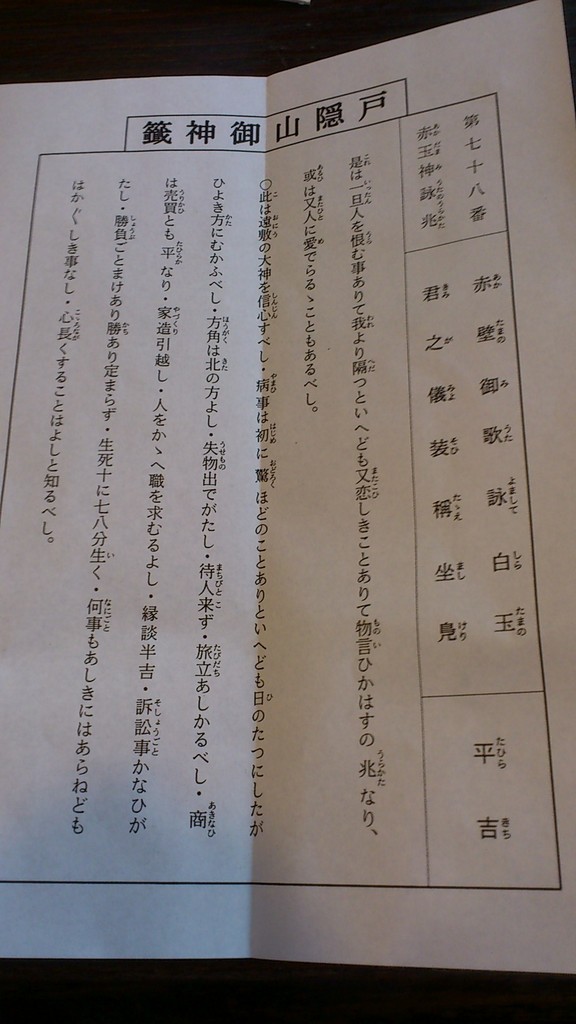 戸隠山御神籤
第七十八番
赤玉神詠兆
赤璧御歌詠白玉
君之儀装稱坐鳧
平吉
是は一旦人を恨む事ありて我より隔つといへども又恋しきことありて物言ひかはすの兆なり、
或は又人に愛でらるゝこともあるべし。
○此は遠敷の大神を信心すべし・病事は初に驚ほどのことありといへども日のたつにしたが
ひよき方にむかふべし・方角は北の方よし・失物出でがたし・待人来ず・旅立あしかるべし・商
は売買とも平なり・家造引越し・人をかゝへ職を求むるよし・縁談半吉・訴訟事かなひが
たし・勝負ごとまけあり勝あり定まらず・生死十に七八分生く・何事もあしきにはあらねども
はかぐしき事なし・心長くすることはよしと知るべし。